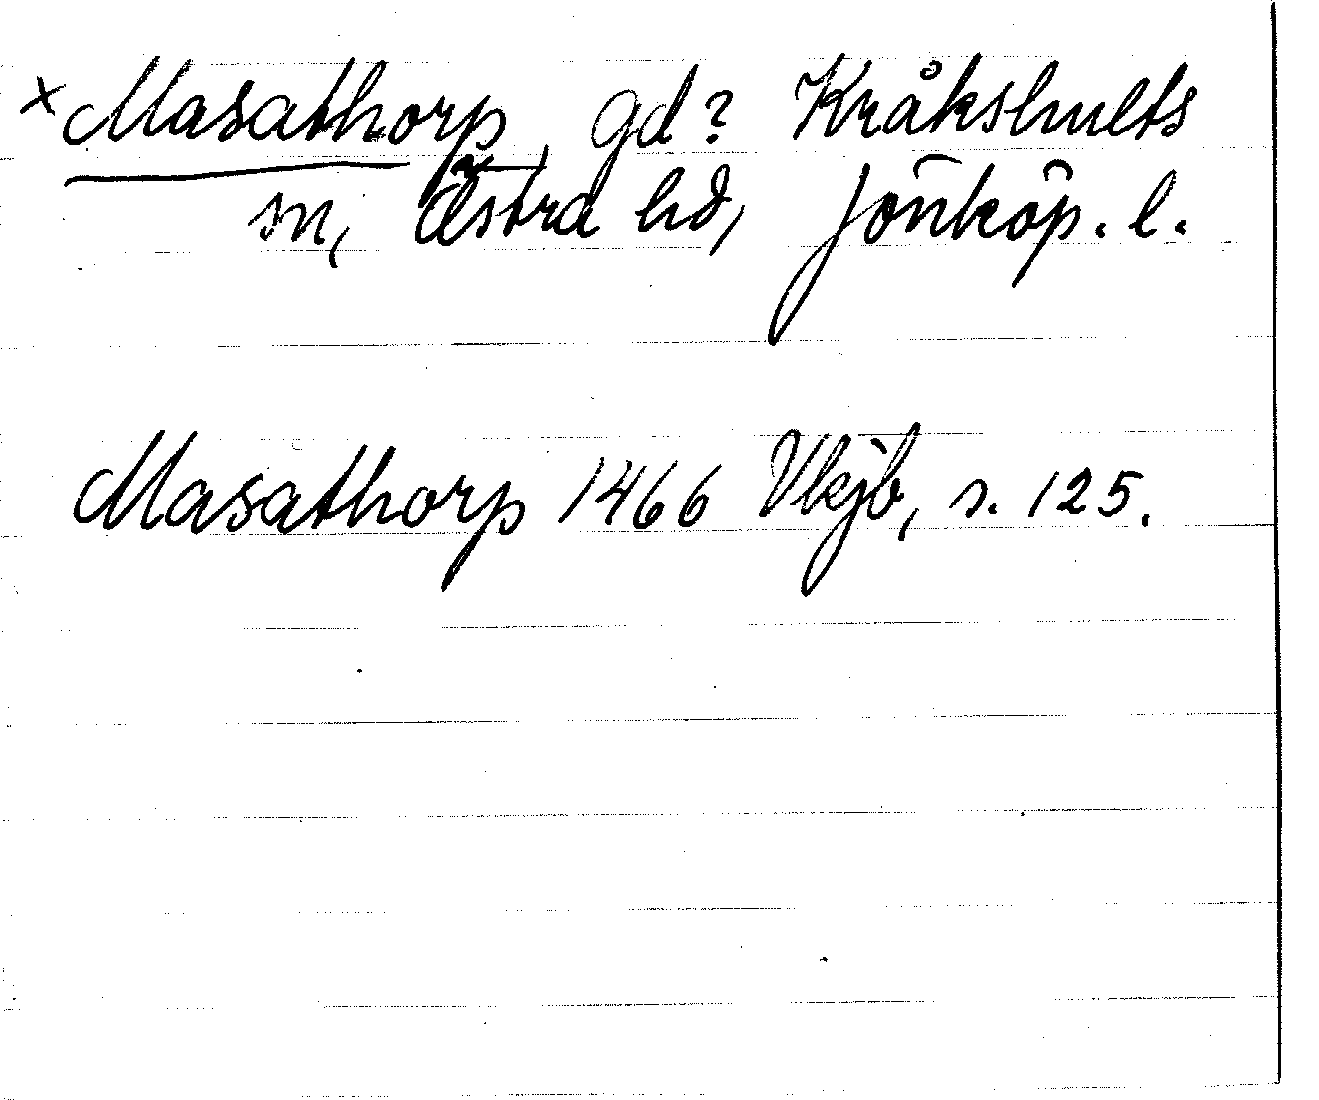 ×Masathorp, gd? Kråkshults
sn, Östra hd, Jönköp. l.
Masathorp 1466 Vkjb, s. 125.